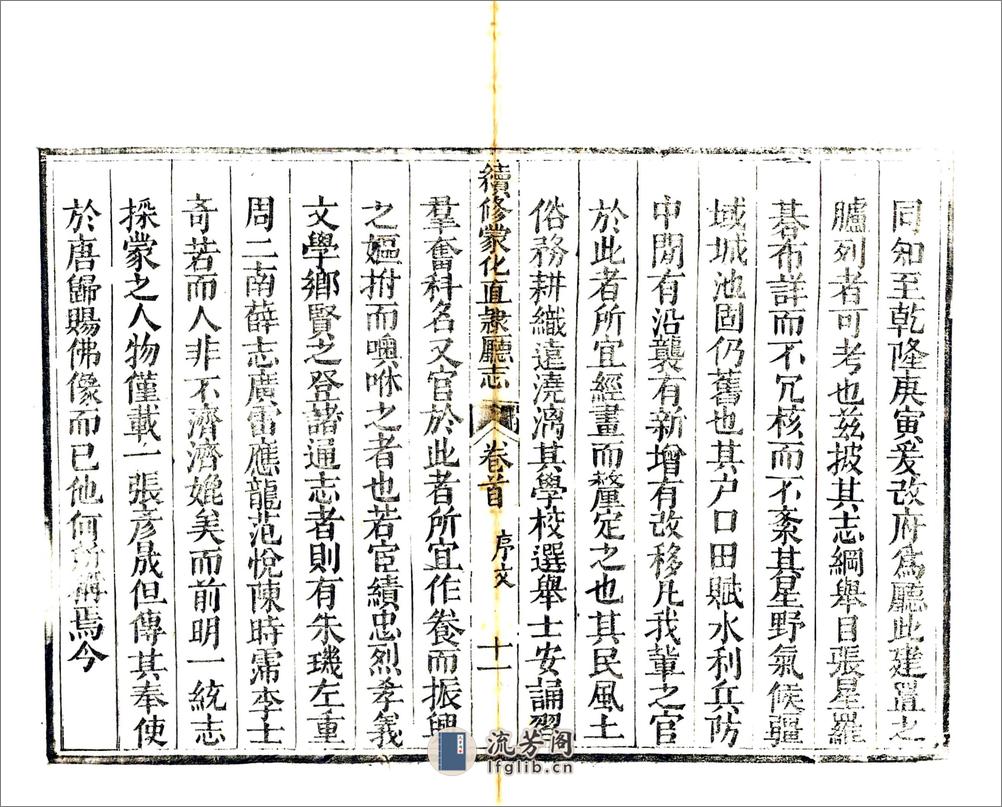 同知至乾隆庚寅爰改府爲廳此建置之
臚列者可考也茲披其志綱舉目張星羅
碁布詳而不冗核而不紊其星野氣候疆
域城池固仍舊也其户口田賦水利兵防
中間有沿襲有新增有改移凡我輩之官
於此者所宜經畫而釐定之也其民風土
俗務耕織遠澆漓其學校選舉士安誦習
續修蒙化直隸廳志 卷首 序文 十一
羣奮科名又官於此者所宜作養而振興
之嫗拊而噢咻之者也若宦績忠烈孝義
文學鄉賢之登諸通志者則有朱璣左重
周二南薛志廣雷應龍范悅陳時霈李士
奇若而人非不濟濟媲美而前明一統志
採蒙之人物僅載一張彥晟但傳其奉使
於唐歸賜佛像而已他何焉今
流芳阁
lfglib.cn